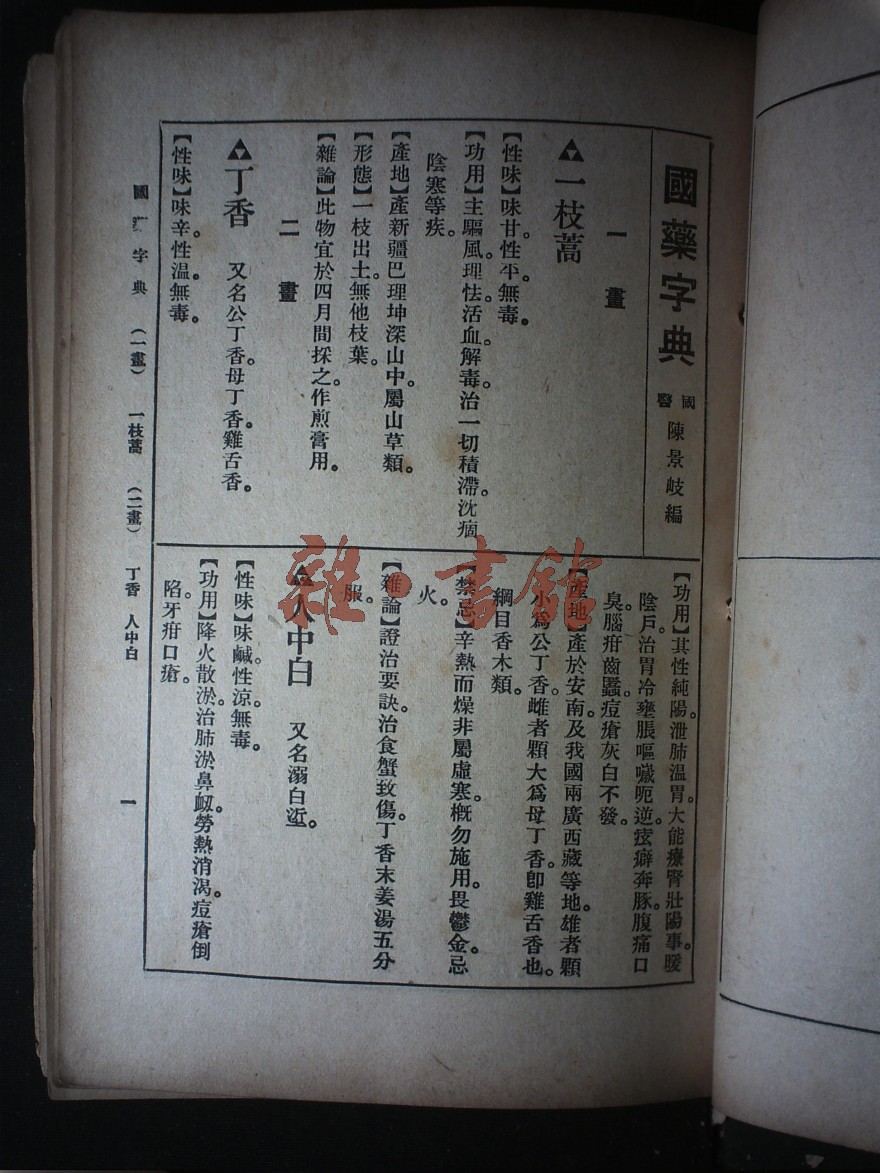 國藥字典 國醫 陳景岐編
一畫
一枝蒿
【性味】味甘。性平。無毒。
【功用】主驅風。理怯。活血。解毒。治一切積滯。沈痼
陰寒等疾。
【產地】產新疆巴理坤深山中。屬山草類。
【形態】一枝出土。無他枝葉。
【雜論】此物宜於四月間採之。作煎膏用。
二畫
丁香 又名公丁香。母丁香。雞舌香。
【性味】味辛。性溫。無毒。
【功用】其性純陽。泄肺溫胃。大能療腎壯陽事。暖
陰戶。治胃冷壅脹。嘔噦呃逆。痃癖奔豚。腹痛口
臭。腦疳齒䘌。痘瘡灰白不發。
【產地】產於安南。及我國兩廣西藏等地。雄者顆
小為公丁香。雌者顆大為母丁香。卽雞舌香也。
綱目香木類。
【禁忌】辛熱而燥。非屬虛寒。概勿施用。畏鬱金。忌
火。
【雜論】證治要訣。治食蟹致傷。丁香末姜湯五分
服。
人中白 又名溺白垽。
【性味】味鹹。性涼。無毒。
【功用】降火散淤。治肺淤鼻衂。勞熱消渴。痘瘡倒
陷。牙疳口瘡。
國藥字典 (一畫) 一枝蒿 (二畫) 丁香 人中白 一
雜·書館